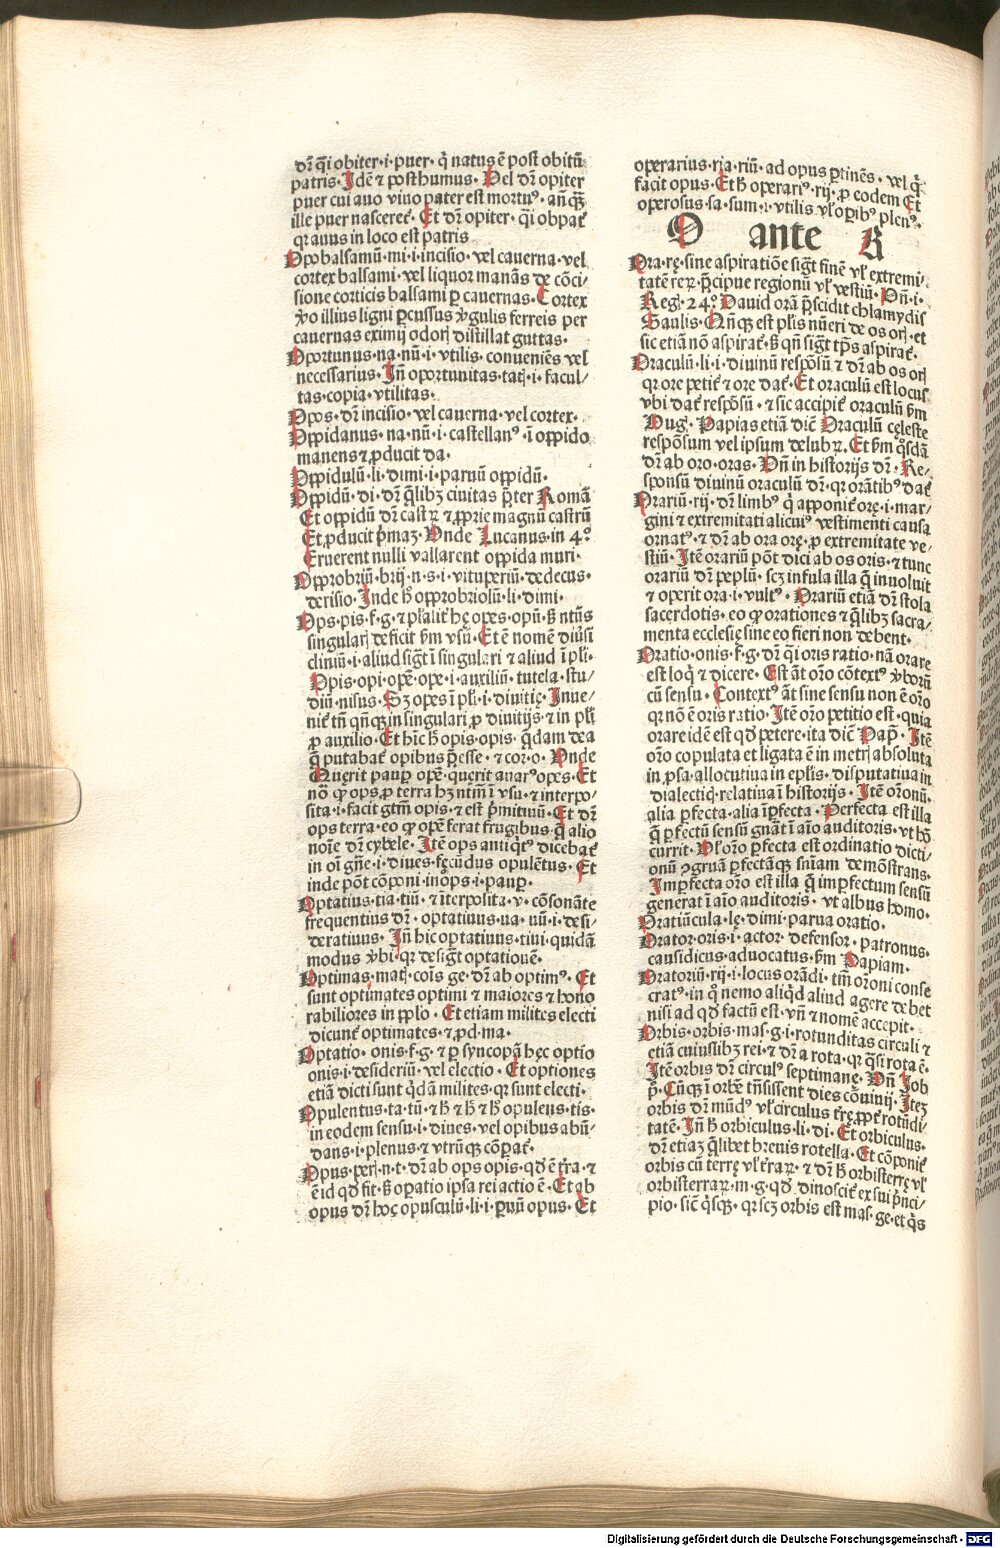 dr̄ q̄i obiter·i·puer· q̇ natus ē post obitū
patris· Idē ⁊ posthumus· Uel dr̄ opiter
puer cui auo viuo pater est mortuꝰ· anq̄ꝫ
ille puer nasceret̄· Et dr̄ opiter· q̄i obpat̄
qr auus in loco est patris
Opobalsamū·mi·i·incisio· vel cauerna·vel
cortex balsami·vel liquor manās de cōci/
sione corticis balsami ꝑ cauernas· Cortex
v̄o illius ligni ꝑcussus v̄gulis ferreis per
cauernas eximij odorꝭ distillat guttas·
Oportunus·na·nū·i·vtilis·conueniēs vel
necessarius· Jn̄ oportunitas·tatꝭ·i·facul/
tas·copia·vtilitas·
Opos·dr̄ incisio·vel cauerna·vel cortex·
Oppidanus·na·nū·i·castellanꝰ·ī oppido
manens ⁊ ꝓducit da·
Oppidulū·li·dimi·i·paruū oppidū·
Oppidū·di·dr̄ q̄libꝫ ciuitas p̄ter Romā
Et oppidū dr̄ castꝝ ⁊ ꝓprie magnū castrū
Et ꝓducit p̄maꝫ· Unde Lucanus·in 4°
Eruerent nulli vallarent oppida muri·
Opprobriū·brij·n·s·i·vituperiū·dedecus·
derisio· Inde h̄ opprobriolū·li·dimi·
Ops·pis·f·g·⁊ pl̄aliť hę opes·opū·ß nt̄ūs
singularꝭ deficit ẜm vsū· Et ē nomē diūsi
cliniū·i·aliud sigt̄ ī singulari ⁊ aliud ī pli·
Opis·opi·opē·ope·i·auxiliū·tutela·stu/
diū·nisus· Sꝫ opes ī pli·i·diuitię· Inue/
nit̄ tn̄ qn̄qꝫ in singulari ꝓ diuitijs·⁊ in plꝭ
ꝓ auxilio· Et hīc h̄ opis·opis·q̄dam dea
q̄ putabat̄ opibus p̄esse·⁊ cor·o· Unde
Querit paupꝭ opē·querit auarꝰ opes· Et
nō qꝛ ops ꝓ terra hꝫ ntm̄ ī vsu·⁊ interpo/
sita·i·facit gtm̄ opis·⁊ est p̄mitiuū· Et dr̄
ops terra·eo qꝙ opē ferat frugibus·q̄ alio
noīe dr̄ cybele· Itē ops antiq̇tꝰ dicebat̄
in oī gn̄e·i·diues·fęcūdus opulētus· Et
inde pōt cōponi·inops·i·paupꝭ·
Optatius·tia·tiū·⁊ īterposita·v·cōsonāte
frequentius dr̄·optatiuus·ua·uū·i·desi/
deratiuus· Jn̄ hic optatiuus·tiui·quidā
modus v̄bi·qr desigt̄ optationē·
Optimas·matꝭ·cōis ge·dr̄ ab optimꝰ· Et
sunt optimates optimi ⁊ maiores ⁊ hono
rabiliores in pplo· Et etiam milites electi
dicunt̄ optimates·⁊ ꝓd·ma·
Optatio·onis·f·g·⁊ ꝑ syncopā hęc optio
onis·i·desideriū·vel electio· Et optiones
etiā dicti sunt q̇dā milites·qr sunt electi·
Opulentus·ta·tū·⁊ h̄ ⁊ h̄ ⁊ h̄ opulens·tis·
in eodem sensu·i·diues·vel opibus abū/
dans·i·plenus·⁊ vtrūqꝫ cōpat̄·
Opus·perꝭ·n·t·dr̄ ab ops opis·qd̄ ē tr̄a·⁊
ē id qd̄ fit·ß oꝑatio ipsa rei actio ē· Et ab
opus dr̄ hoc opusculū·li·i·ꝑuū opus· Et
operarius·ria·riū·ad opus ꝑtinēs·vel q̇
facit opus· Et h̄ operariꝰ·rij·ꝓ eodem Et
operosus·sa·sum·i·vtilis vl̄ oꝑibꝰ plenꝰ·
O ante R
Ora·rę·sine aspiratiōe sigt̄ finē vl̄ extremi/
tatē reꝝ·p̄cipue regionū vl̄ vestiū· Un̄·i·
Reg·24°· Dauid orā p̄scidit chlamydis
Saulis· Qn̄qꝫ est plis nūeri de os orꝭ·et
sic etiā nō aspirat̄·ß qn̄ sigt̄ tp̄s aspirat̄·
Oraculū·li·i·diuinū respōsū ⁊ dr̄ ab os orꝭ
qr ore petit̄ ⁊ ore dat̄· Et oraculū est locus
vbi dat̄ respōsū·⁊ sic accipit̄ oraculū ẜm
Hug· Papias etiā dic̄ Oraculū cęleste
respōsum vel ipsum delubꝝ· Et ẜm q̇sdā
dr̄ ab oro·oras· Un̄ in historijs dr̄· Re/
sponsū diuinū oraculū dr̄·qr orātibꝰ dat̄
Orariū·rij·dr̄ limbꝰ q̇ apponit̄ orę·i·mar/
gini ⁊ extremitati alicuiꝰ vestimenti causa
ornatꝰ·⁊ dr̄ ab ora orę·ꝓ extremitate ve/
stiū· Itē orariū pōt dici ab os oris·⁊ tunc
orariū dr̄ peplū·scꝫ infula illa q̄ inuoluit̄
⁊ operit ora·i·vultꝰ· Orariū etiā dr̄ stola
sacerdotis·eo qꝙ orationes ⁊ q̄libꝫ sacra/
menta ecclesię sine eo fieri non debent·
Oratio·onis·f·g·dr̄ q̄i oris ratio·nā orare
est loqꝭ ⁊ dicere· Est āt orō cōtextꝰ v̄borū
cū sensu· Contextꝰ āt sine sensu non ē orō
qr nō ē oris ratio· Itē orō petitio est·quia
orare idē est qd̄ petere·ita dic̄ Pap̄· Itē
orō copulata et ligata ē in metrꝭ absoluta
in ꝓsa·allocutiua in epl̄is·disputatiua in
dialecticꝭ·relatiua ī historijs· Itē orōnū·
alia ꝑfecta·alia īꝑfecta· Perfecta est illa
q̄ ꝑfectū sensū gnāt ī aīo auditoris·vt hō
currit· Ul̄ orō ꝑfecta est ordinatio dicti/
onū ꝯgruā ꝑfectāqꝫ sn̄iam demōstrans·
Imꝑfecta orō est illa q̄ imperfectum sensū
generat ī aīo auditoris·vt albus homo·
Oratiūcula·lę·dimi·parua oratio·
Orator·oris·i·actor·defensor·patronus·
causidicus·aduocatus·ẜm Papiam·
Oratoriū·rij·i·locus orādi·tm̄ orōni conse
cratꝰ·in q̇ nemo aliq̇d aliud agere debet
nisi ad qd̄ factū est·vn̄ ⁊ nomē accepit·
Orbis·orbis·mas·g·i·rotunditas circuli ⁊
etiā cuiuslibꝫ rei·⁊ dr̄ a rota·qr q̄si rota ē·
Itē orbis dr̄ circulꝰ septimanę· Un̄ Job
p̄· Cūqꝫ ī orbē trāsissent dies cōuiuij· Iteꝫ
orbis dr̄ mūdꝰ vl̄ circulus tr̄rę ꝓpt̄ rotūdi/
tatē· Jn̄ h̄ orbiculus·li·di· Et orbiculus·
dr̄ etiaꝫ q̄libet breuis rotella· Et cōponit̄
orbis cū terrę vl̄ t̄raꝝ·⁊ dr̄ h̄ orbisterrę vl̄
orbisterraꝝ·m·g·qd̄ dinoscit̄ ex sui p̄nci/
pio·sic̄ q̇sqꝫ·qr scꝫ orbis est mas·ge·et q̇s
Digitalisierung gefördert durch die Deutsche Forschungsgemeinschaft - DFG